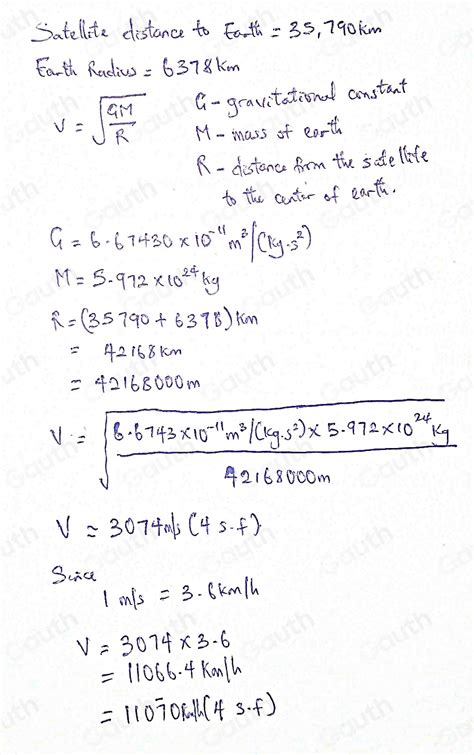 Satellite distance to Earth = 35,790km
Earth Radius = 6378km
V = √(GM/R)
G - gravitational constant
M - mass of earth
R - distance from the satellite
to the center of earth.
G = 6.67430 × 10⁻¹¹ m³/(kg·s²)
M = 5.972 × 10²⁴ kg
R = (35790 + 6378) km
= 42168 km
= 42168000m
V = √(6.6743 × 10⁻¹¹ m³/(kg·s²) × 5.972 × 10²⁴ kg / 42168000m)
V ≈ 3074m/s (4 s.f)
Since
1 m/s = 3.6km/h
V = 3074 × 3.6
= 11066.4 km/h
= 11070km/h (4 s.f)
Gauth